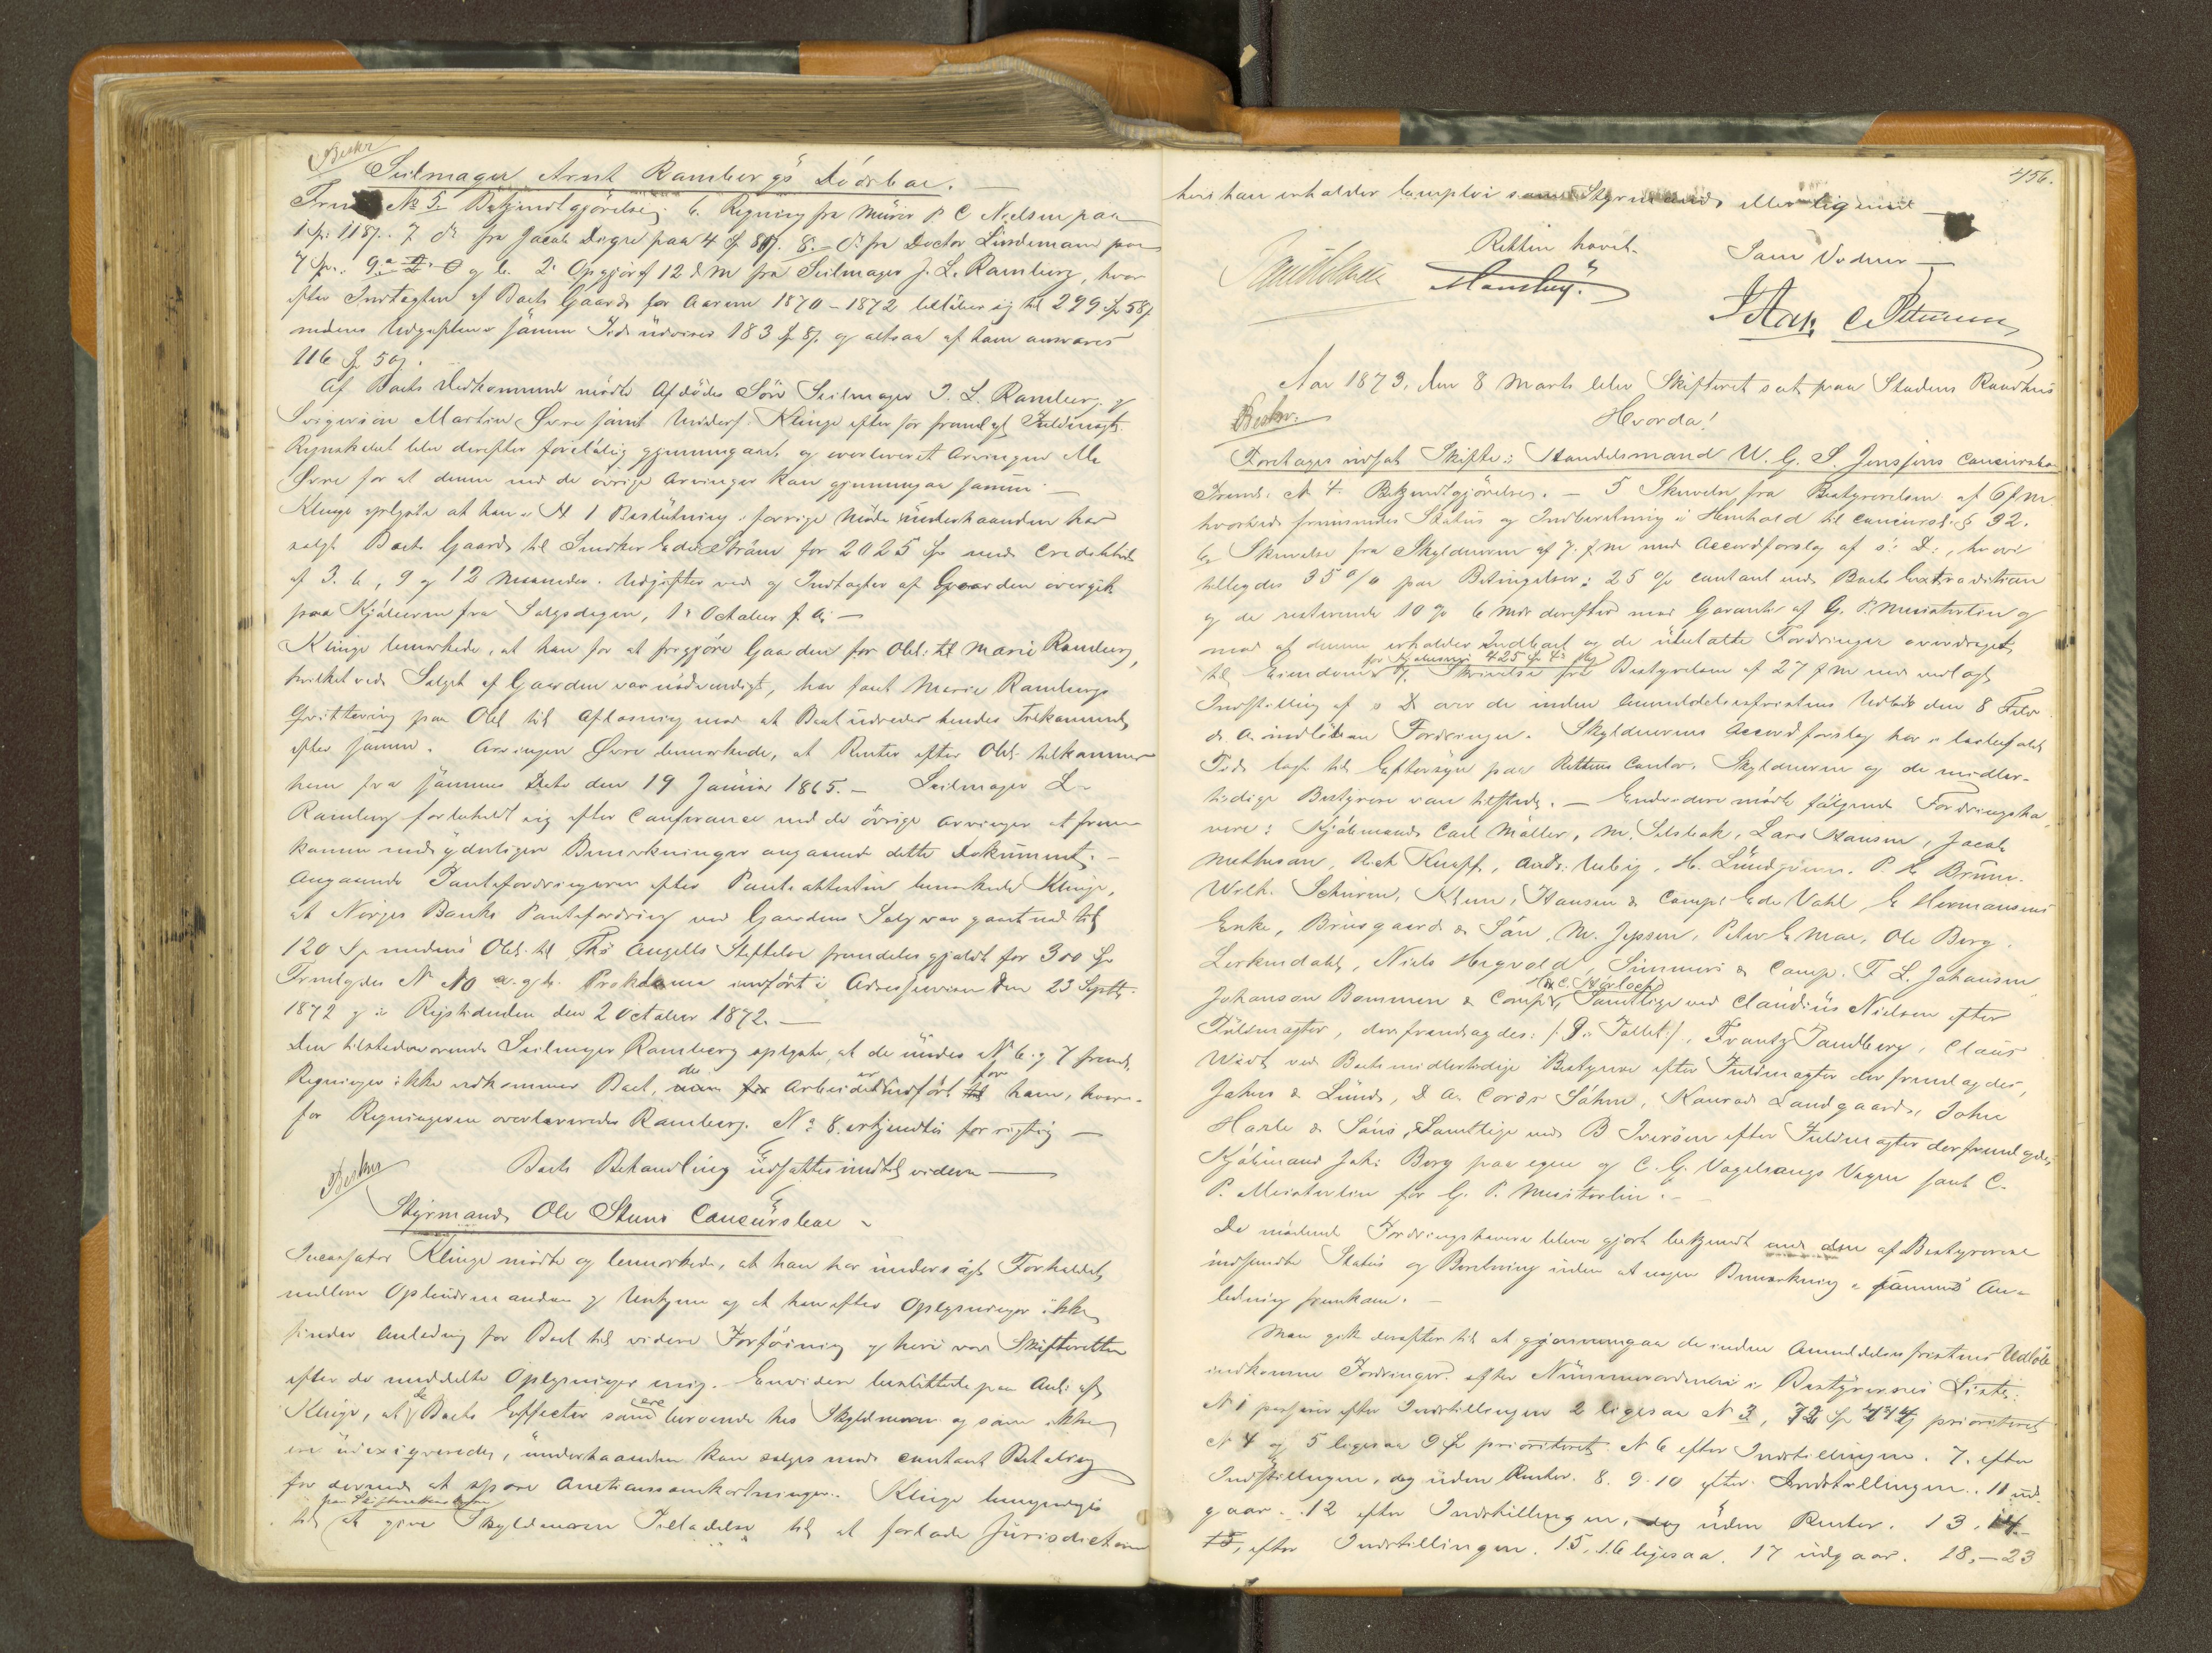 Beskr
Seilmager Arnt Rambergs Dödsbo.
Freml. No 5. Bekjendtgjörelse; 6. Regning fra Mürer P. C Nielsen paa
7 do fra Jacob Digre paa 4 8. do fra Doctor Lindemann paa
7 9. og b. 2 Opgjör af 12 d M fra Seilmager J. L. Ramberg, hvor
efter Indtægten af Boets Gaard for Aarene 1870-1872 beløber sig til 299 Sp 58 s
medens Udgifterne samme Tid udviser 183 Sp 8 s og altsaa af ham ansvares
116 Sp 50 s.
Af Boets Vedkommende mødte Afdödes Sön Seilmager J. L. Ramberg og
Svigersön Martin Øvre samt Underf. Klinge efter för fremlagt Fuldmagt.
Regnskabet blev derefter foreløbig gjennemgaaet og overleveret Arvingen M.
Øvre for at denne med de övrige Arvinger kan gjennemgaa samme. —
Klinge oplyste at han i H t Beslutning i forrige Möde underhaanden har
solgt Boets Gaard til Snedker Ström for 2025 Sp med Credittid
af 3. 6, 9 og 12 Maaneder. Udgifter ved og Indtægter af Gaarden overgik
paa Kjöberen fra Salgsdagen, 1 October f A. —
Klinge bemærkede, at han for at frigjöre Gaarden for Obl: til Marie Ramberg,
hvilket ved Salget af Gaarden var nödvendigt, har faaet Marie Rambergs
Qvittering paa Obl til Aflæsning mod at Boet udreder hendes Tilkommende
efter samme. Arvingen Øvre bemærkede, at Renter efter Obl. tilkommer
hem fra sammes Dato den 19 Januar 1865. — Seilmager L.
Ramberg forbeholdt sig efter Conferance med de övrige Arvinger at frem-
komme med yderligere Bemærkninger angaaende dette Dokument. —
Angaaende Pantefordringerne efter Panteattesten bemærkede Klinge,
at Norges Banks Pantefordring ved Gaardens Salg var gaaet ned til
120 Sp medens Obl. til Ths Angells Stiftelse fremdeles gjaldt for 300 Sp
Fremlagdes No 10 a. og b. Proklama indfört i Adresseavisen den 23 Septb.
1872 og i Rigstidenden den 2 October 1872. —
Den tilstedeværende Seilmager Ramberg oplyste, at de under No 6 og 7 freml.
Regninger ikke vedkommer Boet, da Arbeidet er udfört for ham, hvor-
for Regningerne overleveredes Ramberg. No 8. erkjendtes for rigtig —
Boets Behandling udsattes indtil videre —
Beskr
Styrmand Ole Stuns Concursbo —
Incassator Klinge mödte og bemærkede, at han har undersögt Forholdet
mellem Opbudsmanden og og at han efter Oplysninger ikke
finder Anledning for Boet til videre Forföining og heri var Skifteretten
efter de meddelte Oplysninger enig. Envidere besluttede paa Anl: af
Klinge, at de Boets Effecter som ere beroende hos Skyldneren og som ikke
ere uexigverede, underhaanden kan sælges mod contant Betaling
for derved at spare Auctionsomkostninger. Klinge bemyndiges
fra Skifterettens
til at give Skyldneren Tilladelse til at forlade Jurisdictionen
456.
hvis han erholder Emploi som Styrmand eller lignende
Retten hævet. Som Vidner —
Aar 1873, den 8 Marts blev Skifteret sat paa Stadens Raadhus
Hvorda!
Beskr.
Foretages udsat Skifte: Handelsmand W. G. S. Jenssens Concursbo
Freml. No 4. Bekjendtgjörelse. — 5 Skrivelse fra Bestyrelsen af 6 f m.
hvorved fremsendes Status og Indberetning i Henhold til Concursl. § 92.
6 Skrivelse fra Skyldneren af 7. f m med Accordforslag af s: D:, hvori
tilbydes 35 % paa Betingelser: 25 % contant ved Boets Extradition
og de resterende 10 % 6 Mdr derefter mod Garanti af G. P.
mod at denne erholder Indboet og de udestaaende Fordringer overdraget
til Eiendom for 425 Sp 7. Skrivelse fra Bestyrelsen af 27 f m med vedlagt
Indstilling af s D over de inden Anmeldelsesfristens Udløb den 8 Febr
d. A. indløbne Fordringer. Skyldnerens Accordforslag har i lovbefalet
Tid lagt til Eftersyn paa Rettens Contor. Skyldneren og de midler-
tidige Bestyrere vare tilstede. — Endvidere mödte fölgende Fordringsha-
vere: Kjöbmand Carl Möller, M. Selsbak, Lars Hansen, Jacob
Mathisen, Rich Knoff, Andr. , H. Lundgreen, P. H. Brun.
Wilh. Schiren, Klem, Hansen & Comp: Ede Vahl, E Hermansens
Enke, Bruusgaard & Sön, M. Jepsen, Peter , Ole Berg.
Lerkendahl, Niels Hagvold, Simmers & Comp. F L. Johansen
Johanson Bommen & Comp, H. C. Samtlige ved Claudius Nielsen efter
Fuldmagter, der fremlagdes: /: 9: Tallet:/, Frantz Sandberg, Claus
Wiidt ved Boets midlertidige Bestyrer efter Fuldmagter der fremlagdes,
Jahns & Lund, D A. Cords Söhne, Konrad Landgaard, John
Harle & Söns, Samtlige ved B Iversen efter Fuldmagter der fremlagdes,
Kjöbmand Joh: Berg paa egne og C. G. Vogelsangs Vegne samt C.
P. for G. P.
De mödende Fordringshavere bleve gjort bekjendt med den af Bestyrerne
indsendte Status og Beretning uden at nogen Bemærkning i sammes An-
ledning fremkom. —
Man gik derefter til at gjennemgaa de inden Anmeldelsesfristens Udløb
indkomne Fordringer efter Nummerordenen i Bestyrernes Liste:
No 1 passerer efter Indstillingen 2 ligesaa No 3, 72 Sp prioriteret
No 4 og 5 ligesaa 9 Sp prioriteret. No 6 efter Indstillingen. 7. efter
Indstillingen, dog uden Renter. 8. 9. 10 efter Indstillingen. 11 ud-
gaar. 12 efter Indstillingen, dog uden Renter. 13, 14
15, efter Indstillingen. 15, 16 ligesaa. 17 udgaar. 18, — 23